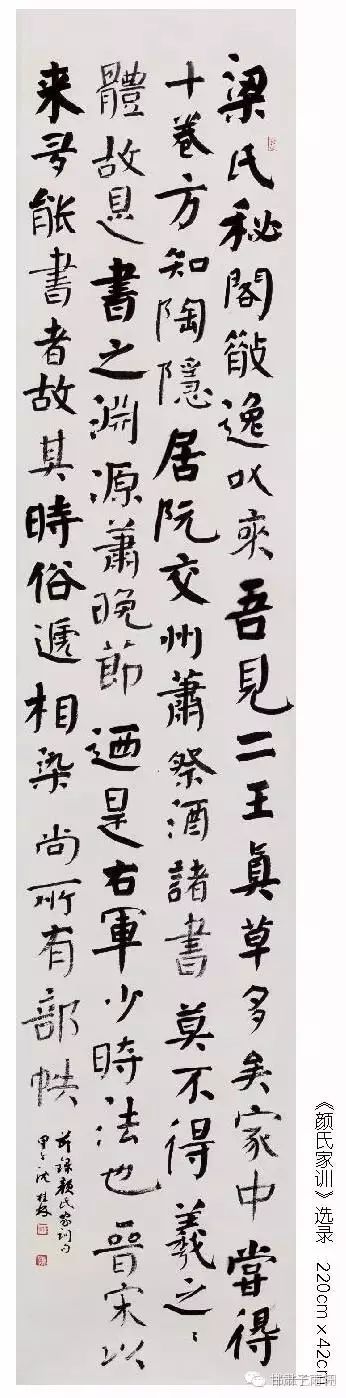 梁氏秘閣散逸以來吾見二王真草多矣家中嘗得
十卷方知陶隱居阮交州蕭祭酒諸書莫不得羲之〻
體故是書之淵源蕭晚節迺是右軍少時法也晉宋以
来多能書者故其時俗遞相染尚所有部帙
節錄顏氏家訓句
《颜氏家训》选录 220cm×42cm